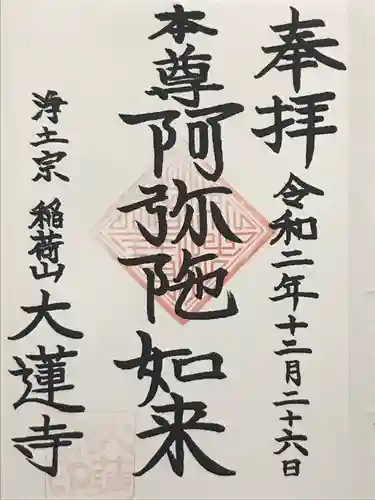 奉拝
令和二年十二月二十六日
本尊
阿弥陀如来
浄土宗 稲荷山
大蓮寺